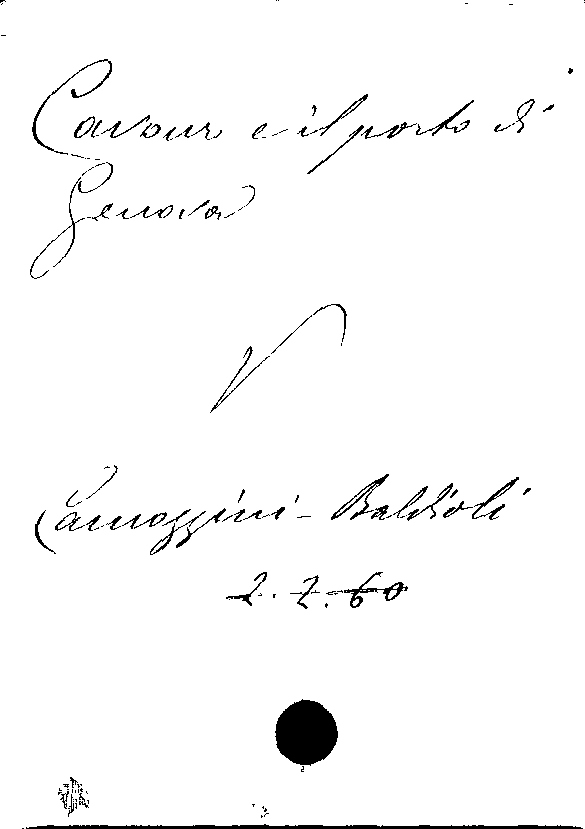 Cavour e il porto di
Genova
V
Camozzini - Baldioli
2. 7. 60